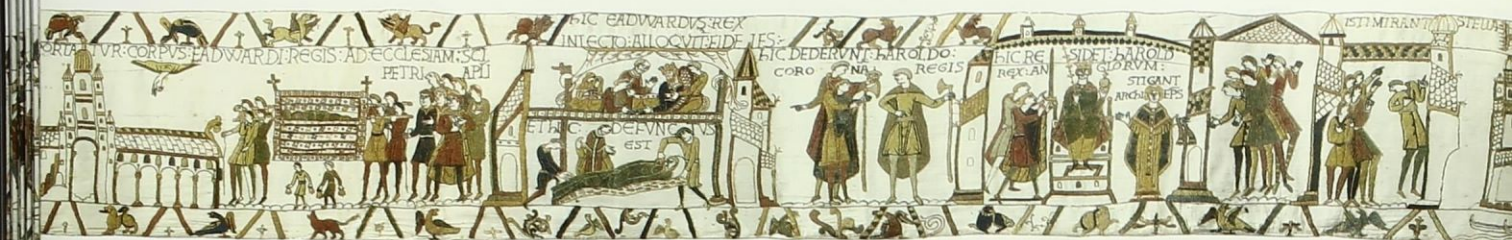 PORTATUR:CORPVS:EADWARDI:REGIS:AD:ECCLESIAM:SCI
PETRI APLI
HIC EADWARDVS:REX
IN LECTO:ALLOQVIT:FIDELES:
ET HIC:DEFUNCTUS
EST
HIC DEDERVNT:HAROLDO:
CORONA REGIS
HIC RESIDET:HAROLD
REX:ANGLORUM:
STIGANT
ARCHIEPS
ISTI MIRANT STELLA